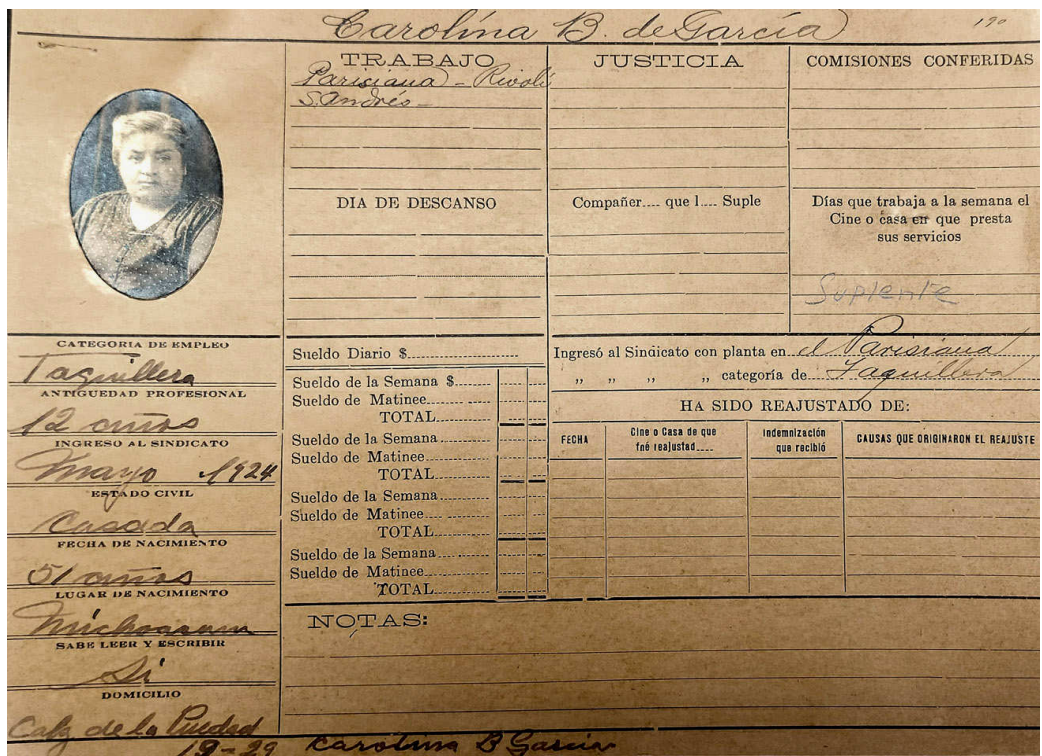 Carolina B. de García
190
TRABAJO
Parisiana - Rivoli
S. Andrés -
DIA DE DESCANSO
JUSTICIA
Compañer.... que l.... Suple
COMISIONES CONFERIDAS
Días que trabaja a la semana el
Cine o casa en que presta
sus servicios
Suplente
CATEGORIA DE EMPLEO
Taquillera
ANTIGUEDAD PROFESIONAL
12 años
INGRESO AL SINDICATO
Mayo 1924
ESTADO CIVIL
Casada
FECHA DE NACIMIENTO
51 años
LUGAR DE NACIMIENTO
Michoacan
SABE LEER Y ESCRIBIR
Si
DOMICILIO
Calz de la Piedad
19-29
Sueldo Diario $
Sueldo de la Semana $
Sueldo de Matinee
TOTAL
Sueldo de la Semana
Sueldo de Matinee
TOTAL
Sueldo de la Semana
Sueldo de Matinee
TOTAL
Sueldo de la Semana
Sueldo de Matinee
TOTAL
Ingresó al Sindicato con planta en el Parisiana
,, ,, ,, ,, categoría de Taquillera
HA SIDO REAJUSTADO DE:
FECHA
Cine o Casa de que
fué reajustad....
Indemnización
que recibió
CAUSAS QUE ORIGINARON EL REAJUSTE
NOTAS:
Carolina B Garcia